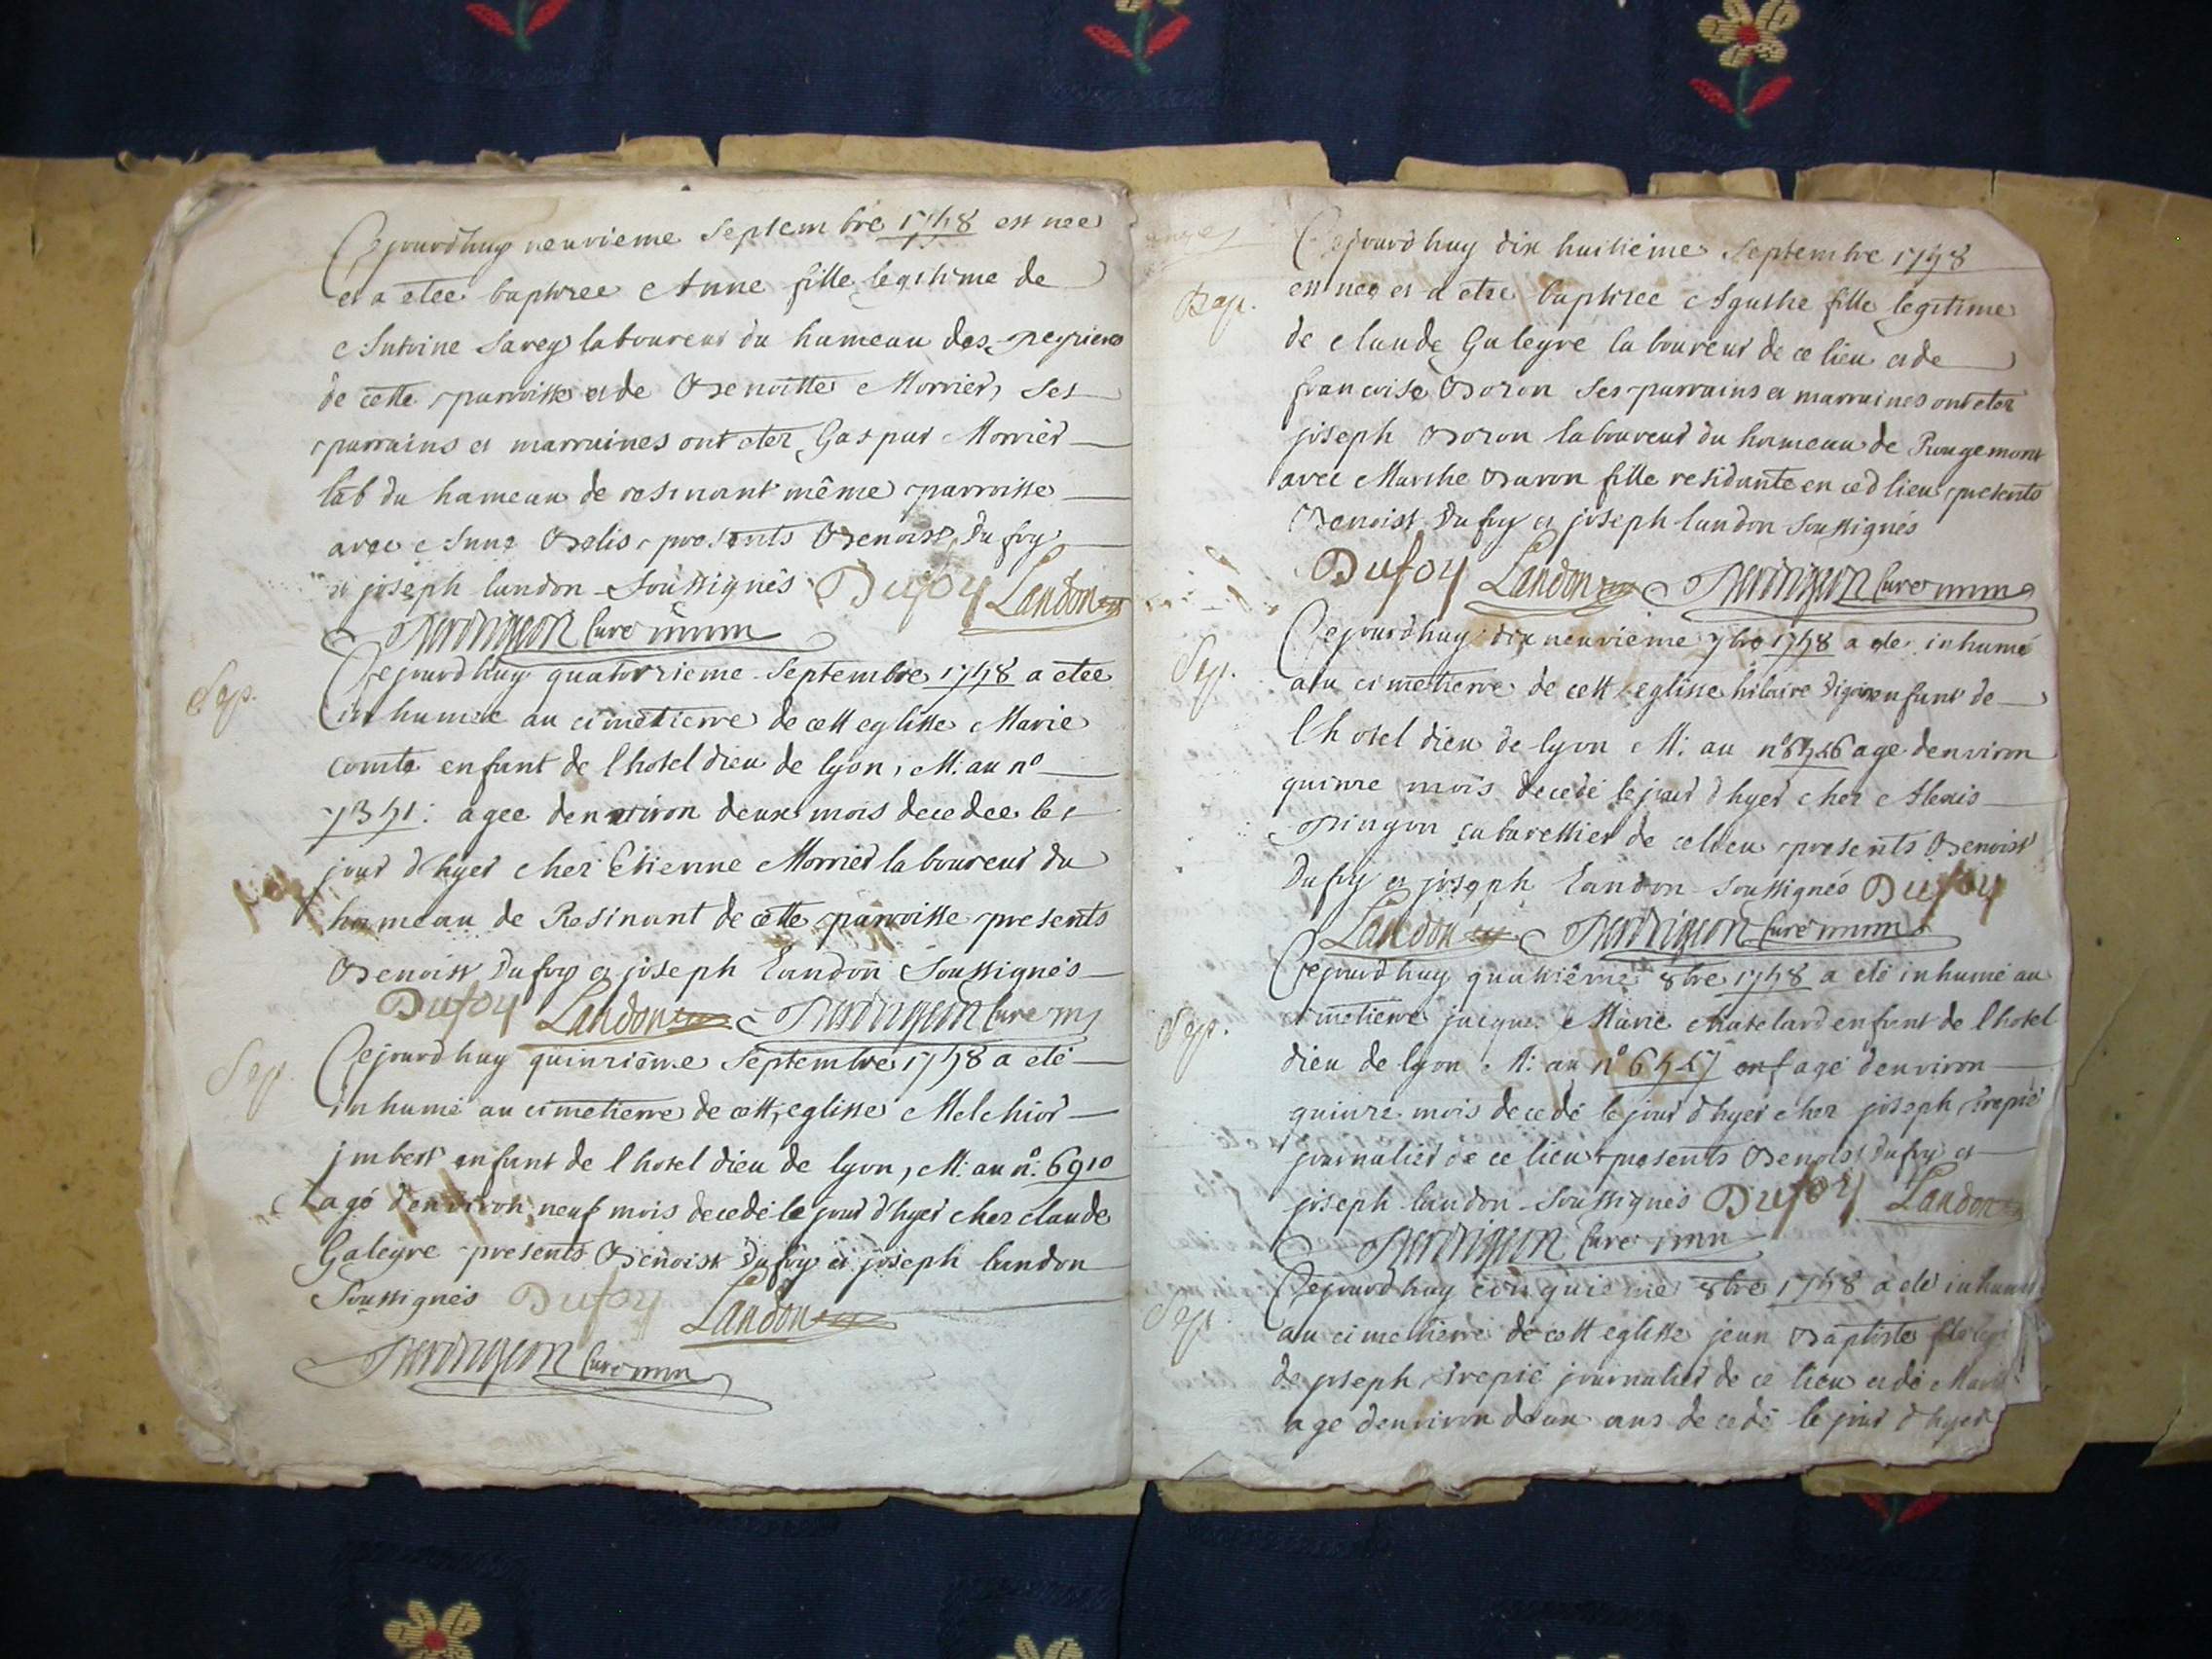 Cejourdhuy neuvieme Septembre 1748 est nee
et a etee baptizee Anne fille legitime de
Antoine Sarey laboureur du hameau des peyrieres
de cette parroisse et de Benoitte Morrier, Ses
parrains et marraines ont etez Gaspar Morrier
lab du hameau de resinant même parroisse
avec Anne Belis, presents Benoist Dufoy
et joseph landon Soussignés Dufoy Landon
Curé
Sep.
Cejourdhuy quatorzieme Septembre 1748 a etee
inhumée au cimetierre de cett eglisse Marie
comte enfant de l hotel dieu de lyon, M. au nº
7341: agee denviron deux mois decedee le
jour d hyer chez Etienne Morrier laboureur du
hameau de Resinant de cette parroisse presents
Benoist Dufoy et joseph landon Soussignés
Dufoy Landon Curé
Sep.
Cejourdhuy quinzième Septembre 1748 a eté
inhumé au cimetierre de cett eglisse Melchior
jmbert enfant de l hotel dieu de lyon, M. au nº. 6910
agé denviron neuf mois decedé le jour d hyer chez claude
Galeyre presents Benoist Dufoy et joseph landon
Soussignés Dufoy Landon
Curé
Bap.
Cejourdhuy dix huitième Septembre 1748
est nee et a etee baptizee Agathe fille legitime
de claude Galeyre laboureur de ce lieu et de
francoise Boron Ses parrains et marraines ont etez
joseph Boron laboureur du hameau de Rougemont
avec Marthe Baron fille residante en ced lieu, presents
Benoist Dufoy et joseph landon Soussignés
Dufoy Landon Curé
Sep.
Cejourdhuy dix neuvième 7bre 1748 a eté inhumé
au cimetierre de cett eglisse hilaire enfant de
l hotel dieu de lyon M: au nº age denviron
quinze mois decedé le jour d hyer chez Alexis
Pingon cabarettier de ce lieu presents Benoist
Dufoy et joseph landon Soussignés Dufoy
Landon Curé
Sep.
Cejourdhuy quatrième 8bre 1748 a eté inhumé au
cimetierre jacques Marie chatelard enfant de l hotel
dieu de lyon M: au nº agé denviron
quinze mois decedé le jour d hyer chez joseph trepié
journalier de ce lieu presents Benoist Dufoy et
joseph landon Soussignés Dufoy Landon
Curé
Sep.
Cejourdhuy cinquième 8bre 1748 a eté inhumé
au cimetierre de cett eglisse jean Baptiste
de joseph trepié journalier de ce lieu et de
age denviron deux ans decedé le jour d hyer